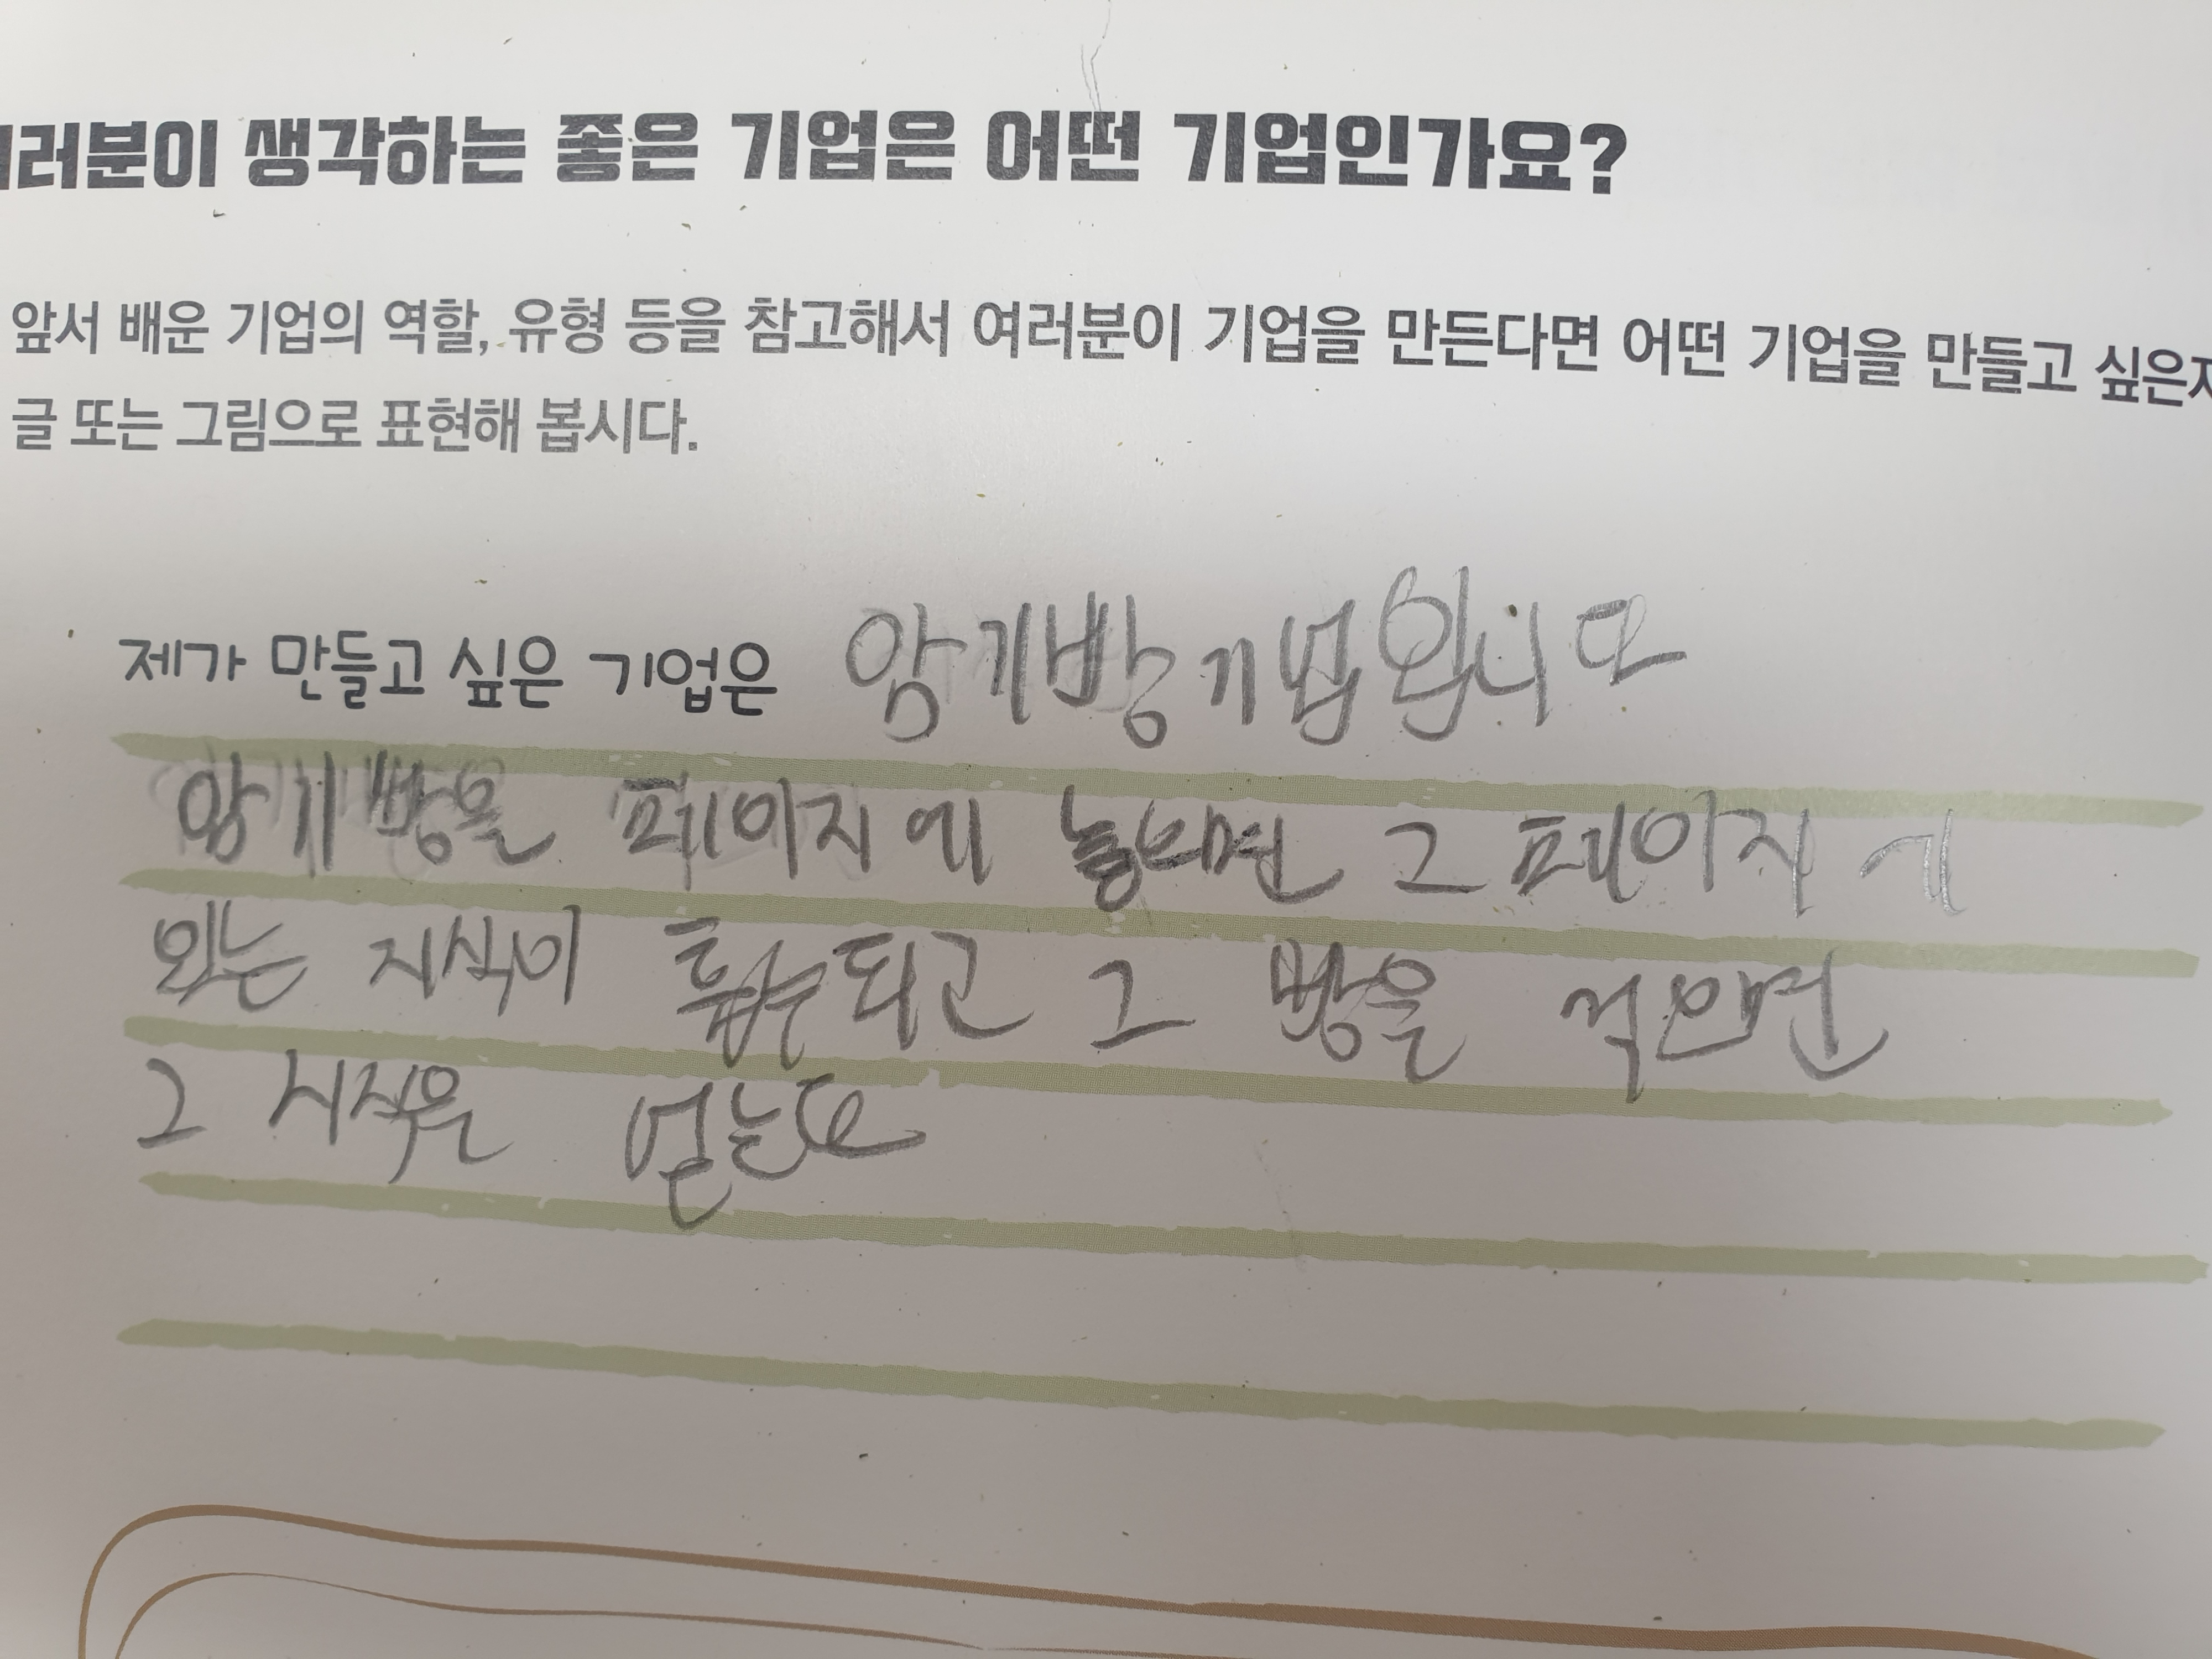 여러분이 생각하는 좋은 기업은 어떤 기업인가요?
앞서 배운 기업의 역할, 유형 등을 참고해서 여러분이 기업을 만든다면 어떤 기업을 만들고 싶은지
글 또는 그림으로 표현해 봅시다.
제가 만들고 싶은 기업은 암기빵기업입니다
암기빵을 페이지에 놓으면 그 페이지에
있는 지식이 흡수되고 그 빵을 먹으면
그 지식은 얻는다